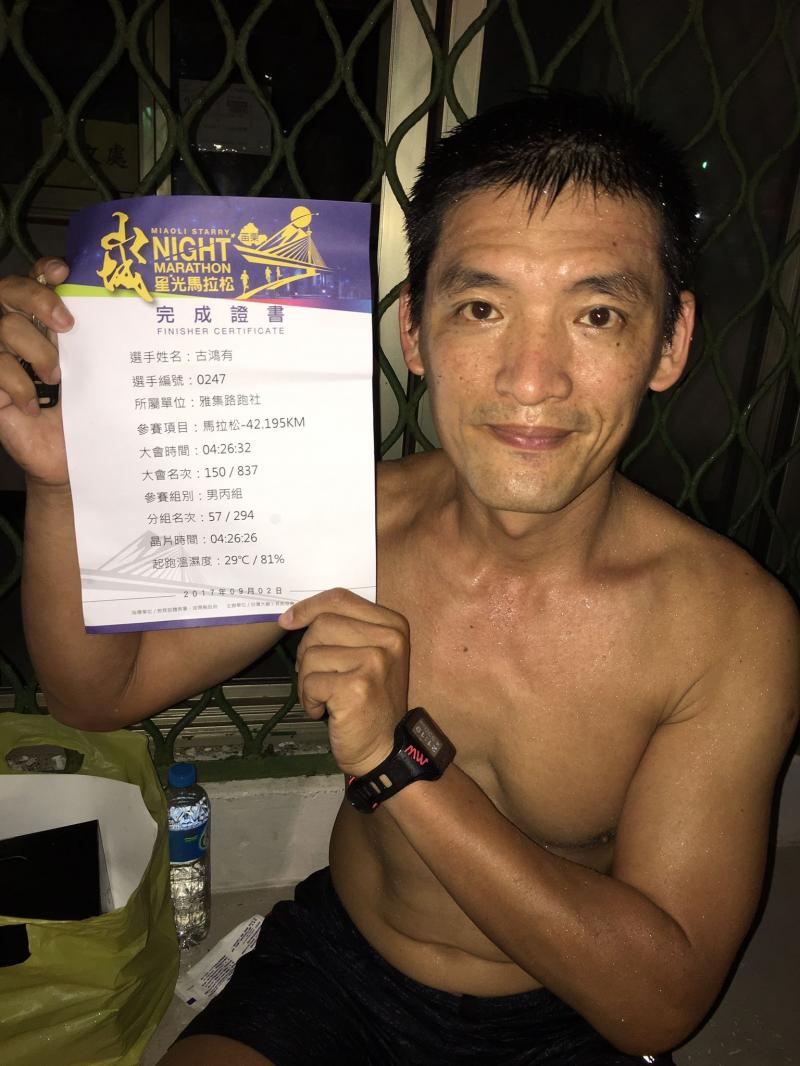 MIAOLI STARRY
NIGHT
MARATHON
苗栗
星光馬拉松
完成證書
FINISHER CERTIFICATE
選手姓名：古鴻有
選手編號：0247
所屬單位：雅集路跑社
參賽項目：馬拉松-42.195KM
大會時間：04:26:32
大會名次：150 / 837
參賽組別：男丙組
分組名次：57 / 294
晶片時間：04:26:26
起跑溫濕度：29℃ / 81%
2017年09月02日